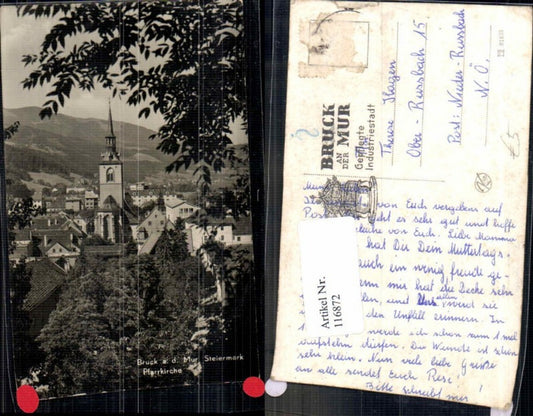 Bruck a. d. Mur Steiermark
Pfarrkirche
BRUCK
AN
DER MUR
Gepflegte
Industriestadt
Therese
Ober-Russbach 15
Post: Nieder-Russbach
N. Ö.
Artikel Nr.
116872
von Euch vergebens auf
Post es sehr gut und hoffe
von Euch. Liebe Mamma
hat Dir Dein Muttertags.
auch ein wenig freude ge-
mir hat die Decke sehr
und uns werd sie
den Unfall erinnern. In
werde ich schon zum 1 mal
aufstehn dürfen. Die Wunde ist schon
sehr klein. Nun viele liebe Grüsse
an alle sendet Euch Resi!
Bitte schreibt mir